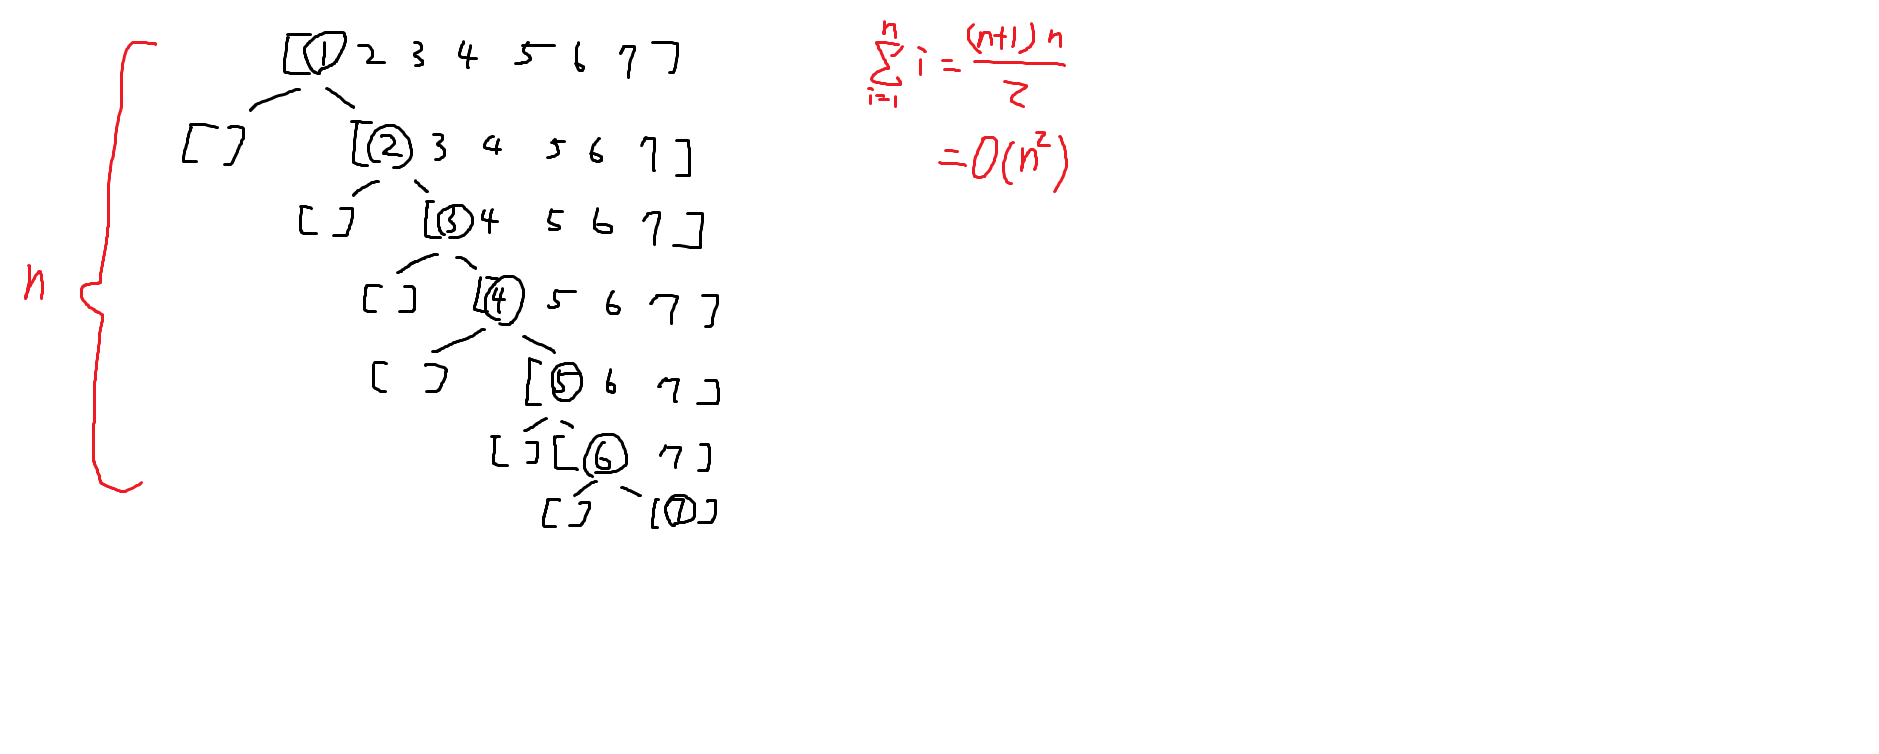 [1 2 3 4 5 6 7]
[ ] [2 3 4 5 6 7]
[ ] [3 4 5 6 7]
[ ] [4 5 6 7]
[ ] [5 6 7]
[ ] [6 7]
[ ] [7]
n
n
∑ i = (n+1) n / 2
i=1
= O(n²)